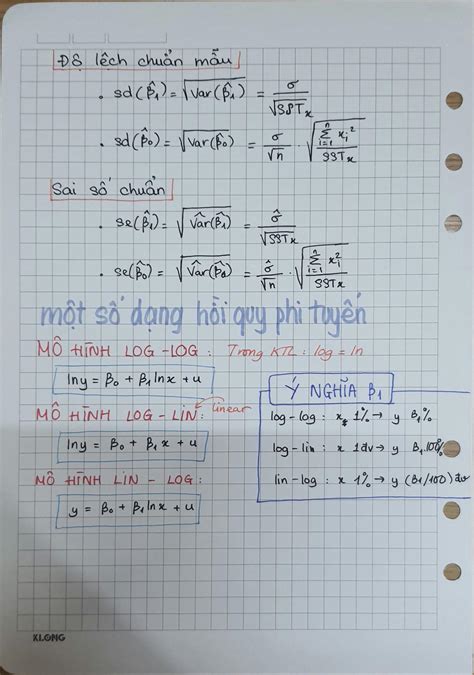 Độ lệch chuẩn mẫu
• sd(β̂₁) = √Var(β̂₁) = σ/√SSTₓ
• sd(β̂₀) = √Var(β̂₀) = σ/√n · √(∑ᵢ₌₁ⁿ xᵢ²/SSTₓ)
Sai số chuẩn
• se(β̂₁) = √V̂ar(β̂₁) = σ̂/√SSTₓ
• se(β̂₀) = √V̂ar(β̂₀) = σ̂/√n · √(∑ᵢ₌₁ⁿ xᵢ²/SSTₓ)
một số dạng hồi quy phi tuyến
MÔ HÌNH LOG-LOG: Trong KTL: log = ln
lny = β₀ + β₁lnx + u
MÔ HÌNH LOG-LIN: linear
lny = β₀ + β₁x + u
MÔ HÌNH LIN-LOG:
y = β₀ + β₁lnx + u
Ý NGHĨA β₁
log-log: x 1% → y β₁%
log-lin: x 1đv → y β₁.100%
lin-log: x 1% → y (β₁/100) đv
KLONG